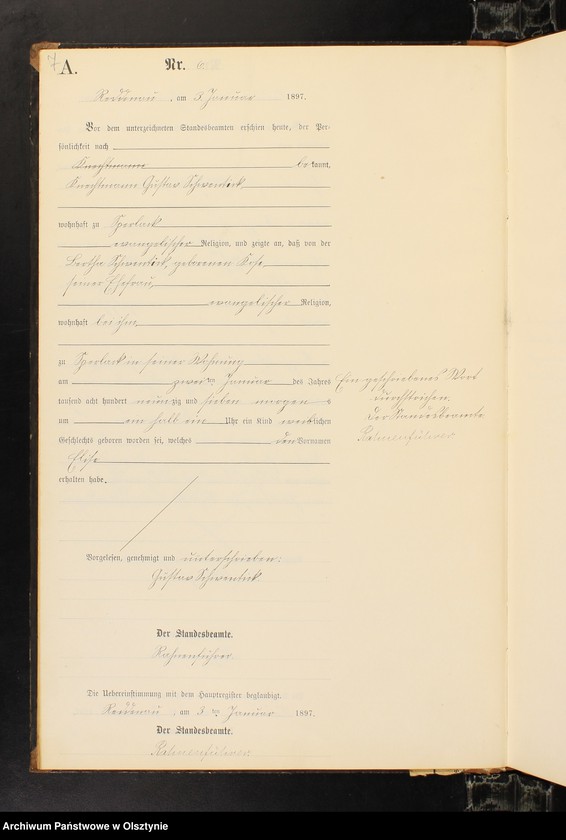 7
A.
Nr. 6
am 3. Januar 1897.
Vor dem unterzeichneten Standesbeamten erschien heute, der Per-
sönlichkeit nach
be kannt,
Gustav Schwentick
wohnhaft zu Sperlack
evangelischer Religion, und zeigte an, daß von der
Bertha Schwentick, geborenen
seiner Ehefrau,
evangelischer Religion,
wohnhaft bei ihm,
zu Sperlack in seiner Wohnung
am zwei ten Januar des Jahres
tausend acht hundert neunzig und sieben morgens
um ein halb ein Uhr ein Kind weiblichen
Geschlechts geboren worden sei, welches den Vornamen
Elise
erhalten habe.
Ein geschriebenes Wort
durchstrichen.
Der Standesbeamte
Vorgelesen, genehmigt und unterschrieben:
Gustav Schwentick
Der Standesbeamte.
Die Uebereinstimmung mit dem Hauptregister beglaubigt.
am 3. ten Januar 1897.
Der Standesbeamte.
Archiwum Państwowe w Olsztynie